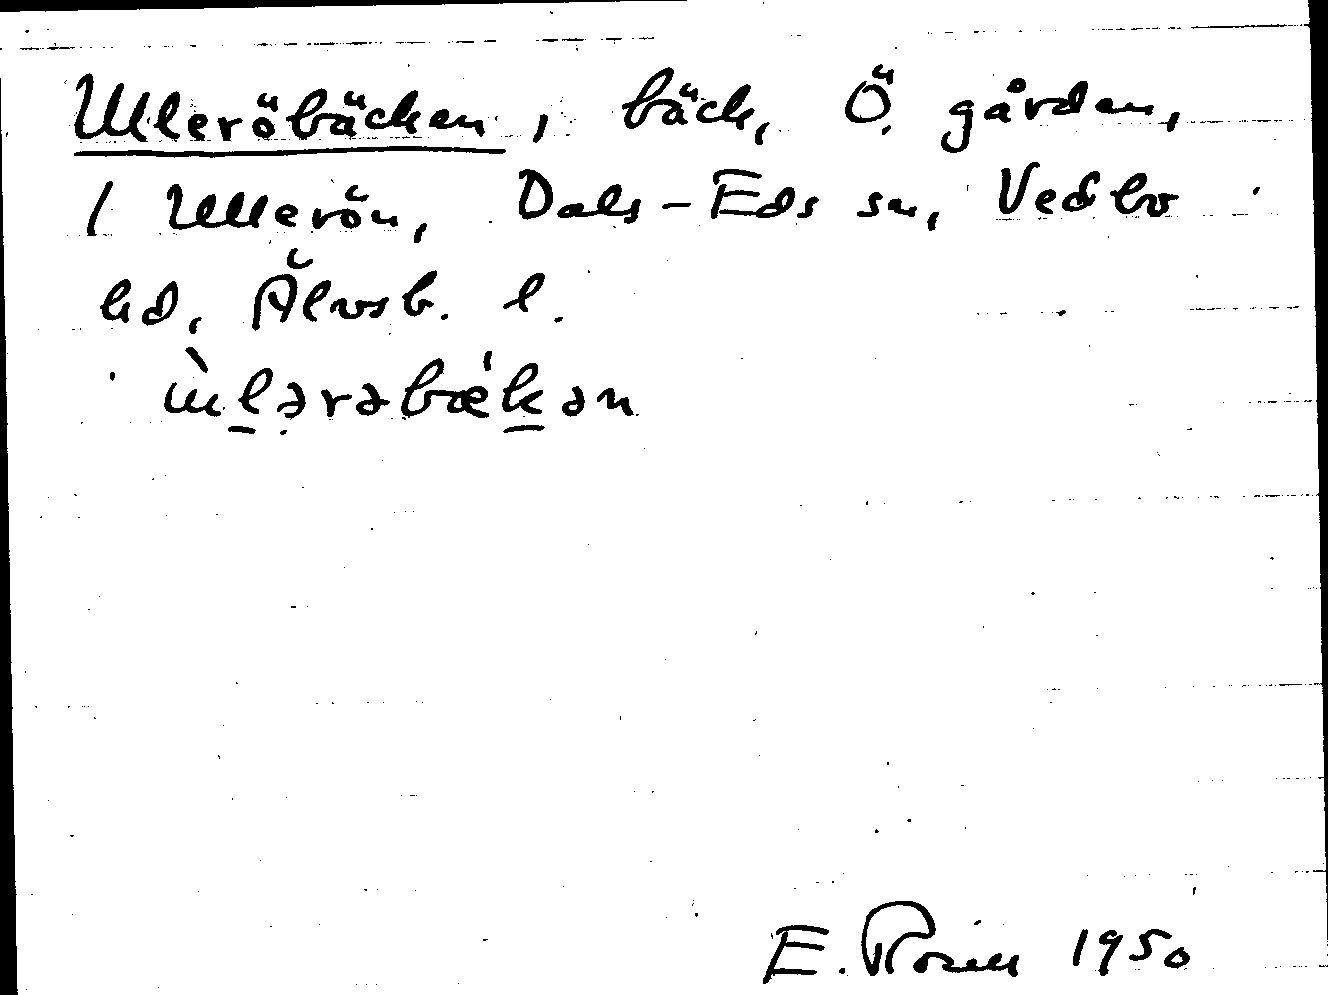 Ulleröbäcken, bäck, Ö. gården,
/ Ullerön, Dals-Eds sn, Vedbo
hd, Älvsb. l.
ùlərəbǽkən
E. Rosell 1950